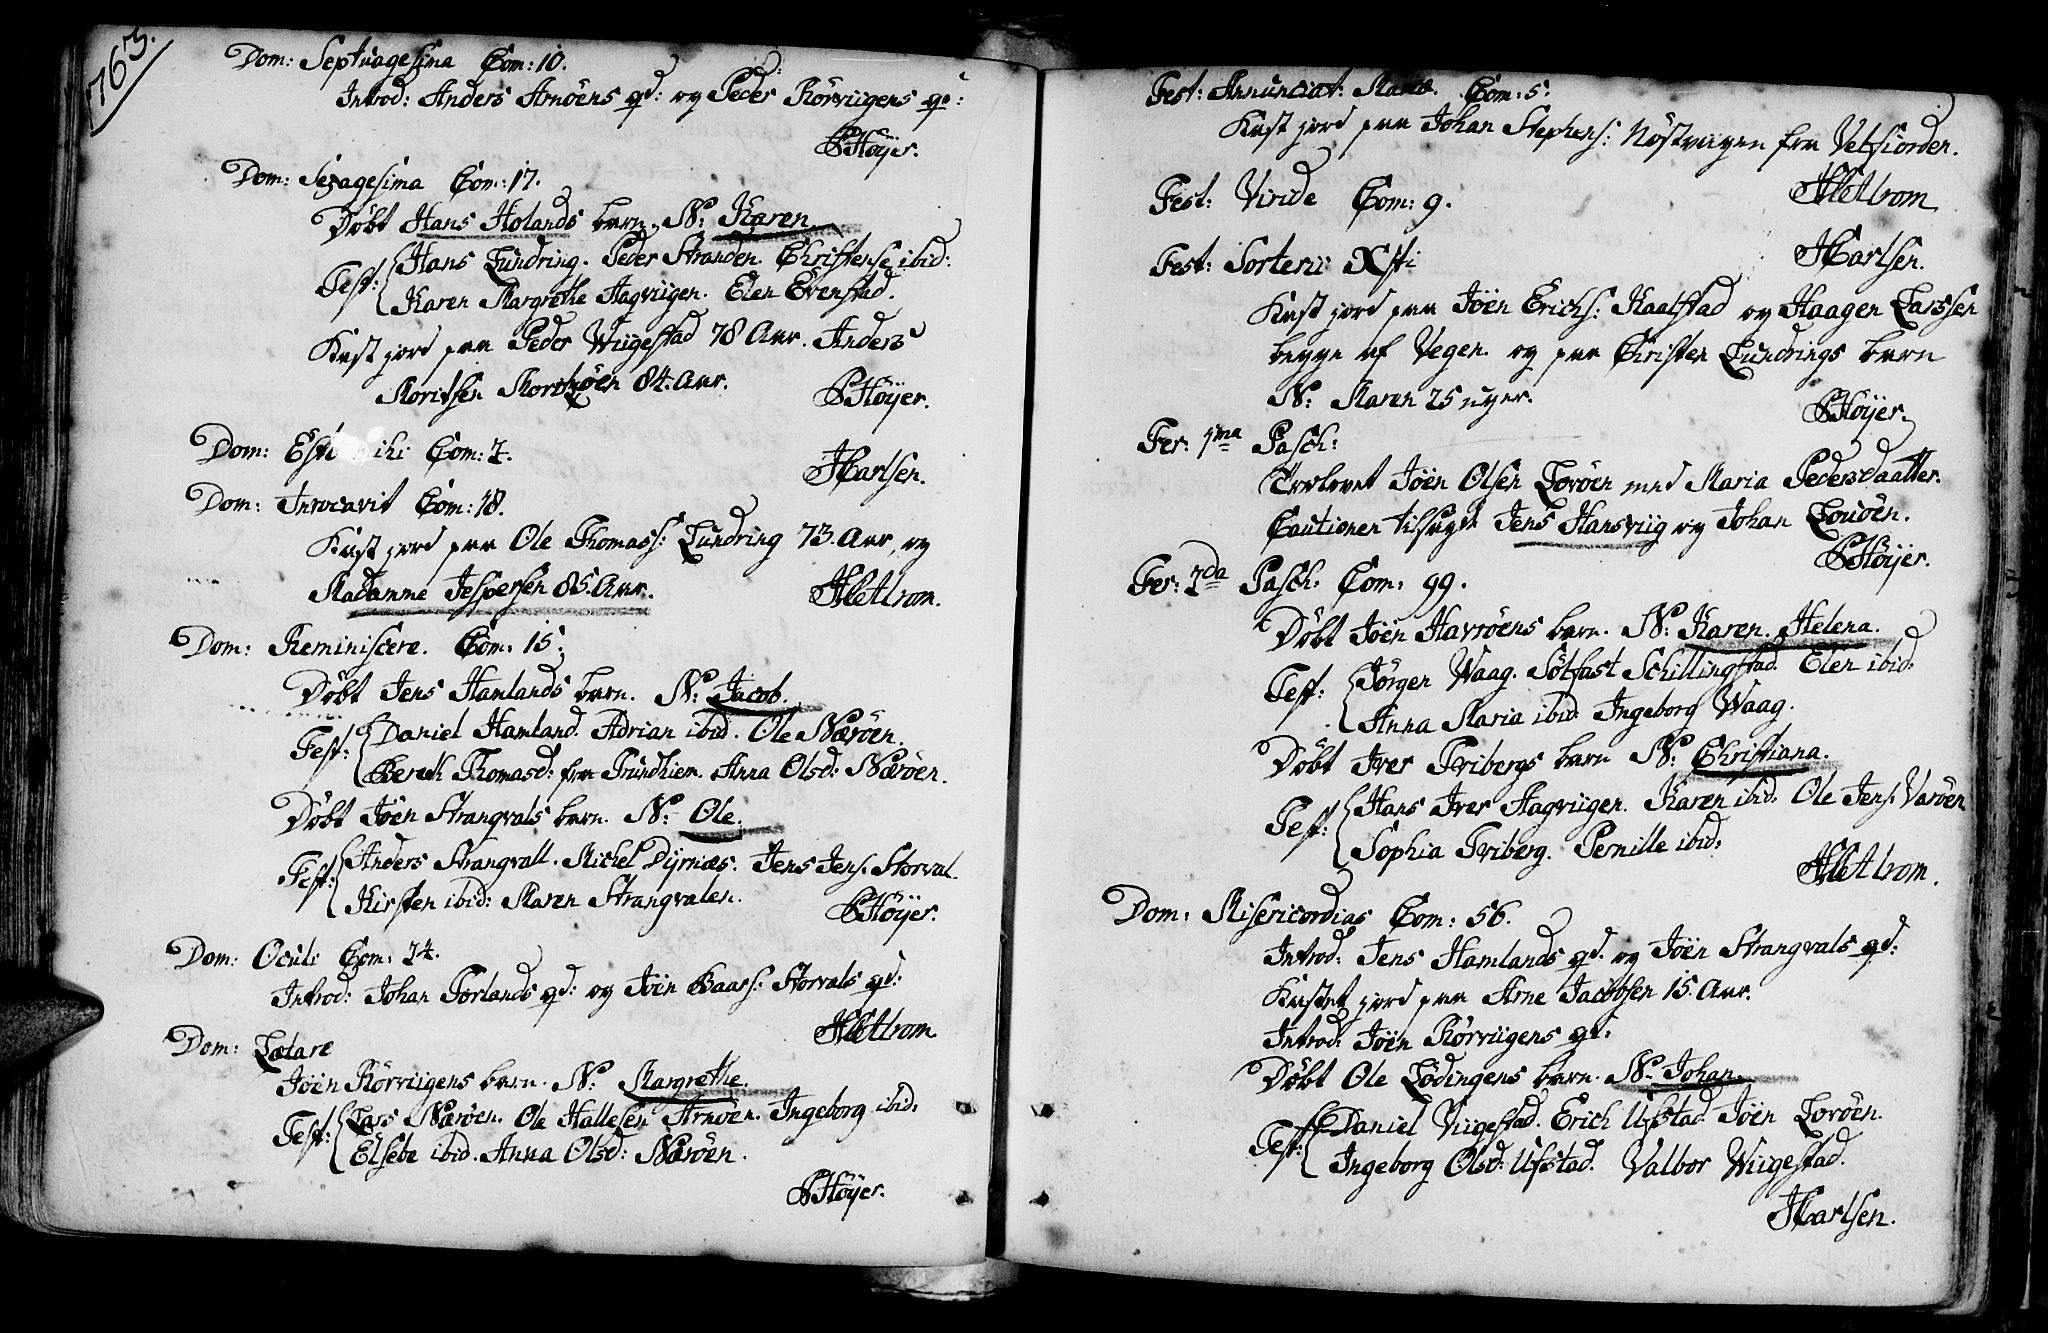 763.
Dom: Septuagesima Com: 10.
Introd: Anders Arnöens qd: og Peder Rörviigens qd:
PHöÿer.
Dom: Sexagesima Com: 17.
Döbt Hans Holands barn. N: Karen
Test: Hans Lundring. Peder Stranden. Christense ibid:
Karen Margrethe Hagviigen. Elen Evenstad.
Kast jord paa Peder Wiigestad 78 Aar. Anders
Moritsen 84. Aar.
PHöÿer.
Dom: Com: 7.
HCarlsen.
Dom: Invocavit Com: 18.
Kast jord paa Ole Thomass: Lundring 73. Aar, og
Madamme Jespersen 85. Aar.
Dom: Reminiscere. Com: 15.
Döbt Jens Hamlands barn. N: Jacob.
Test: Daniel Hamland. Adrian ibid. Ole Næröen.
Bereth Thomasd: fra Trundhiem. Anna Olsd: Næröen.
Döbt Jöen Strangvals barn. N: Ole.
Test: Anders Strangvall. Michel Dÿrnæs. Jens Jens. Storval.
Kirsten ibid: Maren Strangvalen.
PHöÿer.
Dom: Oculi Com: 24.
Introd: Johan Torlands qd: og Jöen Baars: Storvals qd:
Dom: Lætare
Jöen Rörviigens barn. N: Margrethe.
Test: Lars Næröen. Ole Hallesen Arnöen. Ingeborg ibid:
Elsebe ibid. Anna Olsd: Næröen.
PHöÿer.
Fest: Annunciat: Mariæ. Com: 5.
Kast jord paa Johan Stephens: Nöstvaagen fra Velfiorden.
Fest: Viride Com: 9.
HCarlsen.
Fest: Xsti
Kast jord paa Jöen Erichs: Kaalstad og Haagen Larssen
begge af Vegen. og paa Christen Lundrings barn
N: Maren 25 uger.
PHöÿer.
Fer: 1ma Pasch:
Trolovet Jöen Olsen Loröen med Maria Pedersdaatter.
Cautionen tilsagde Jens Hansviig og Johan
PHöÿer.
Fer: 2da Pasch: Com: 99.
Döbt Jöen Havröens barn. N: Karen. Helena.
Test: Jörgen Waag. Sölfast Schillingstad. Elen ibid:
Anna Maria ibid: Ingeborg Waag.
Döbt Iver Fribergs barn N: Christiana.
Test: Hans Iver Hagviigen. Karen ibid: Ole Jens. Varöen
Sophia Friberg. Pernille ibid:
Dom: Misericordias Com: 56.
Introd: Jens Hamlands qd. og Jöen Strangvals qd:
Kastet jord paa Arne Jacobsen 15. Aar.
Introd: Jöen Rörviigens qd:
Döbt Ole Lödingens barn. N: Johan.
Test: Daniel Viigestad. Erich Ufstad. Jöen Loröen.
Ingeborg Olsd: Ufstad. Valbor Wiigestad.
HCarlsen.